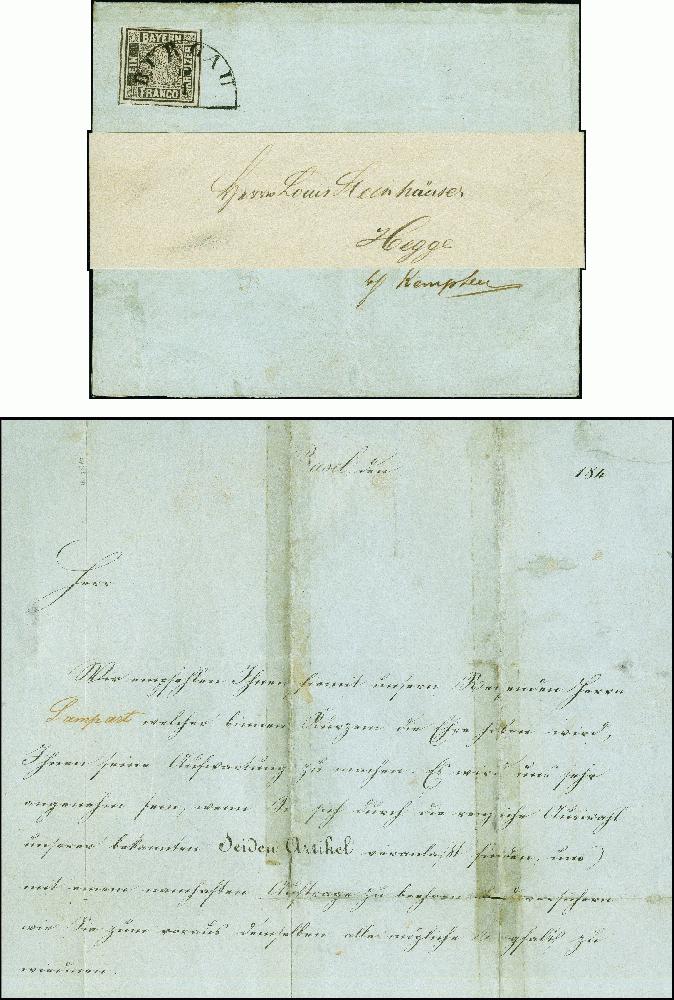 BAYERN
EIN
KREUZER
FRANCO
BURGAU
Herrn Louis Steinhäuser
Hegge
b/ Kempten
Basel den 184
Herr
Wir empfehlen Ihnen hiemit unsern Reisenden Herrn
Lampart welcher binnen Kurzem die Ehre haben wird,
Ihnen seine Aufwartung zu machen. Es wird uns sehr
angenehm sein, wenn Sie sich durch die Auswahl
unserer bekannten Seiden Artikel veranlasst finden, uns
mit einem namhaften Auftrage zu beehren
wir Sie zum voraus demselben alle mögliche Sorgfalt zu
wiedmen.